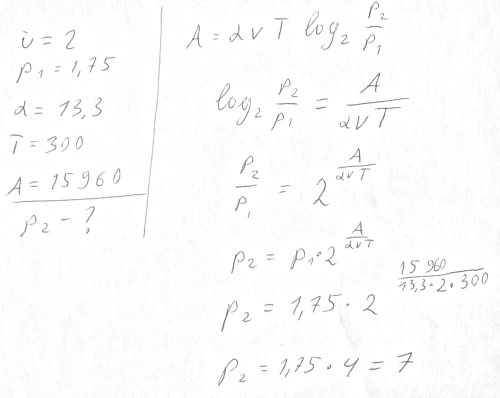 ν = 2
p₁ = 1,75
α = 13,3
T = 300
A = 15960
p₂ - ?
A = α ν T log₂ p₂/p₁
log₂ p₂/p₁ = A/(α ν T)
p₂/p₁ = 2^(A/(α ν T))
p₂ = p₁ · 2^(A/(α ν T))
p₂ = 1,75 · 2^(15 960/(13,3 · 2 · 300))
p₂ = 1,75 · 4 = 7